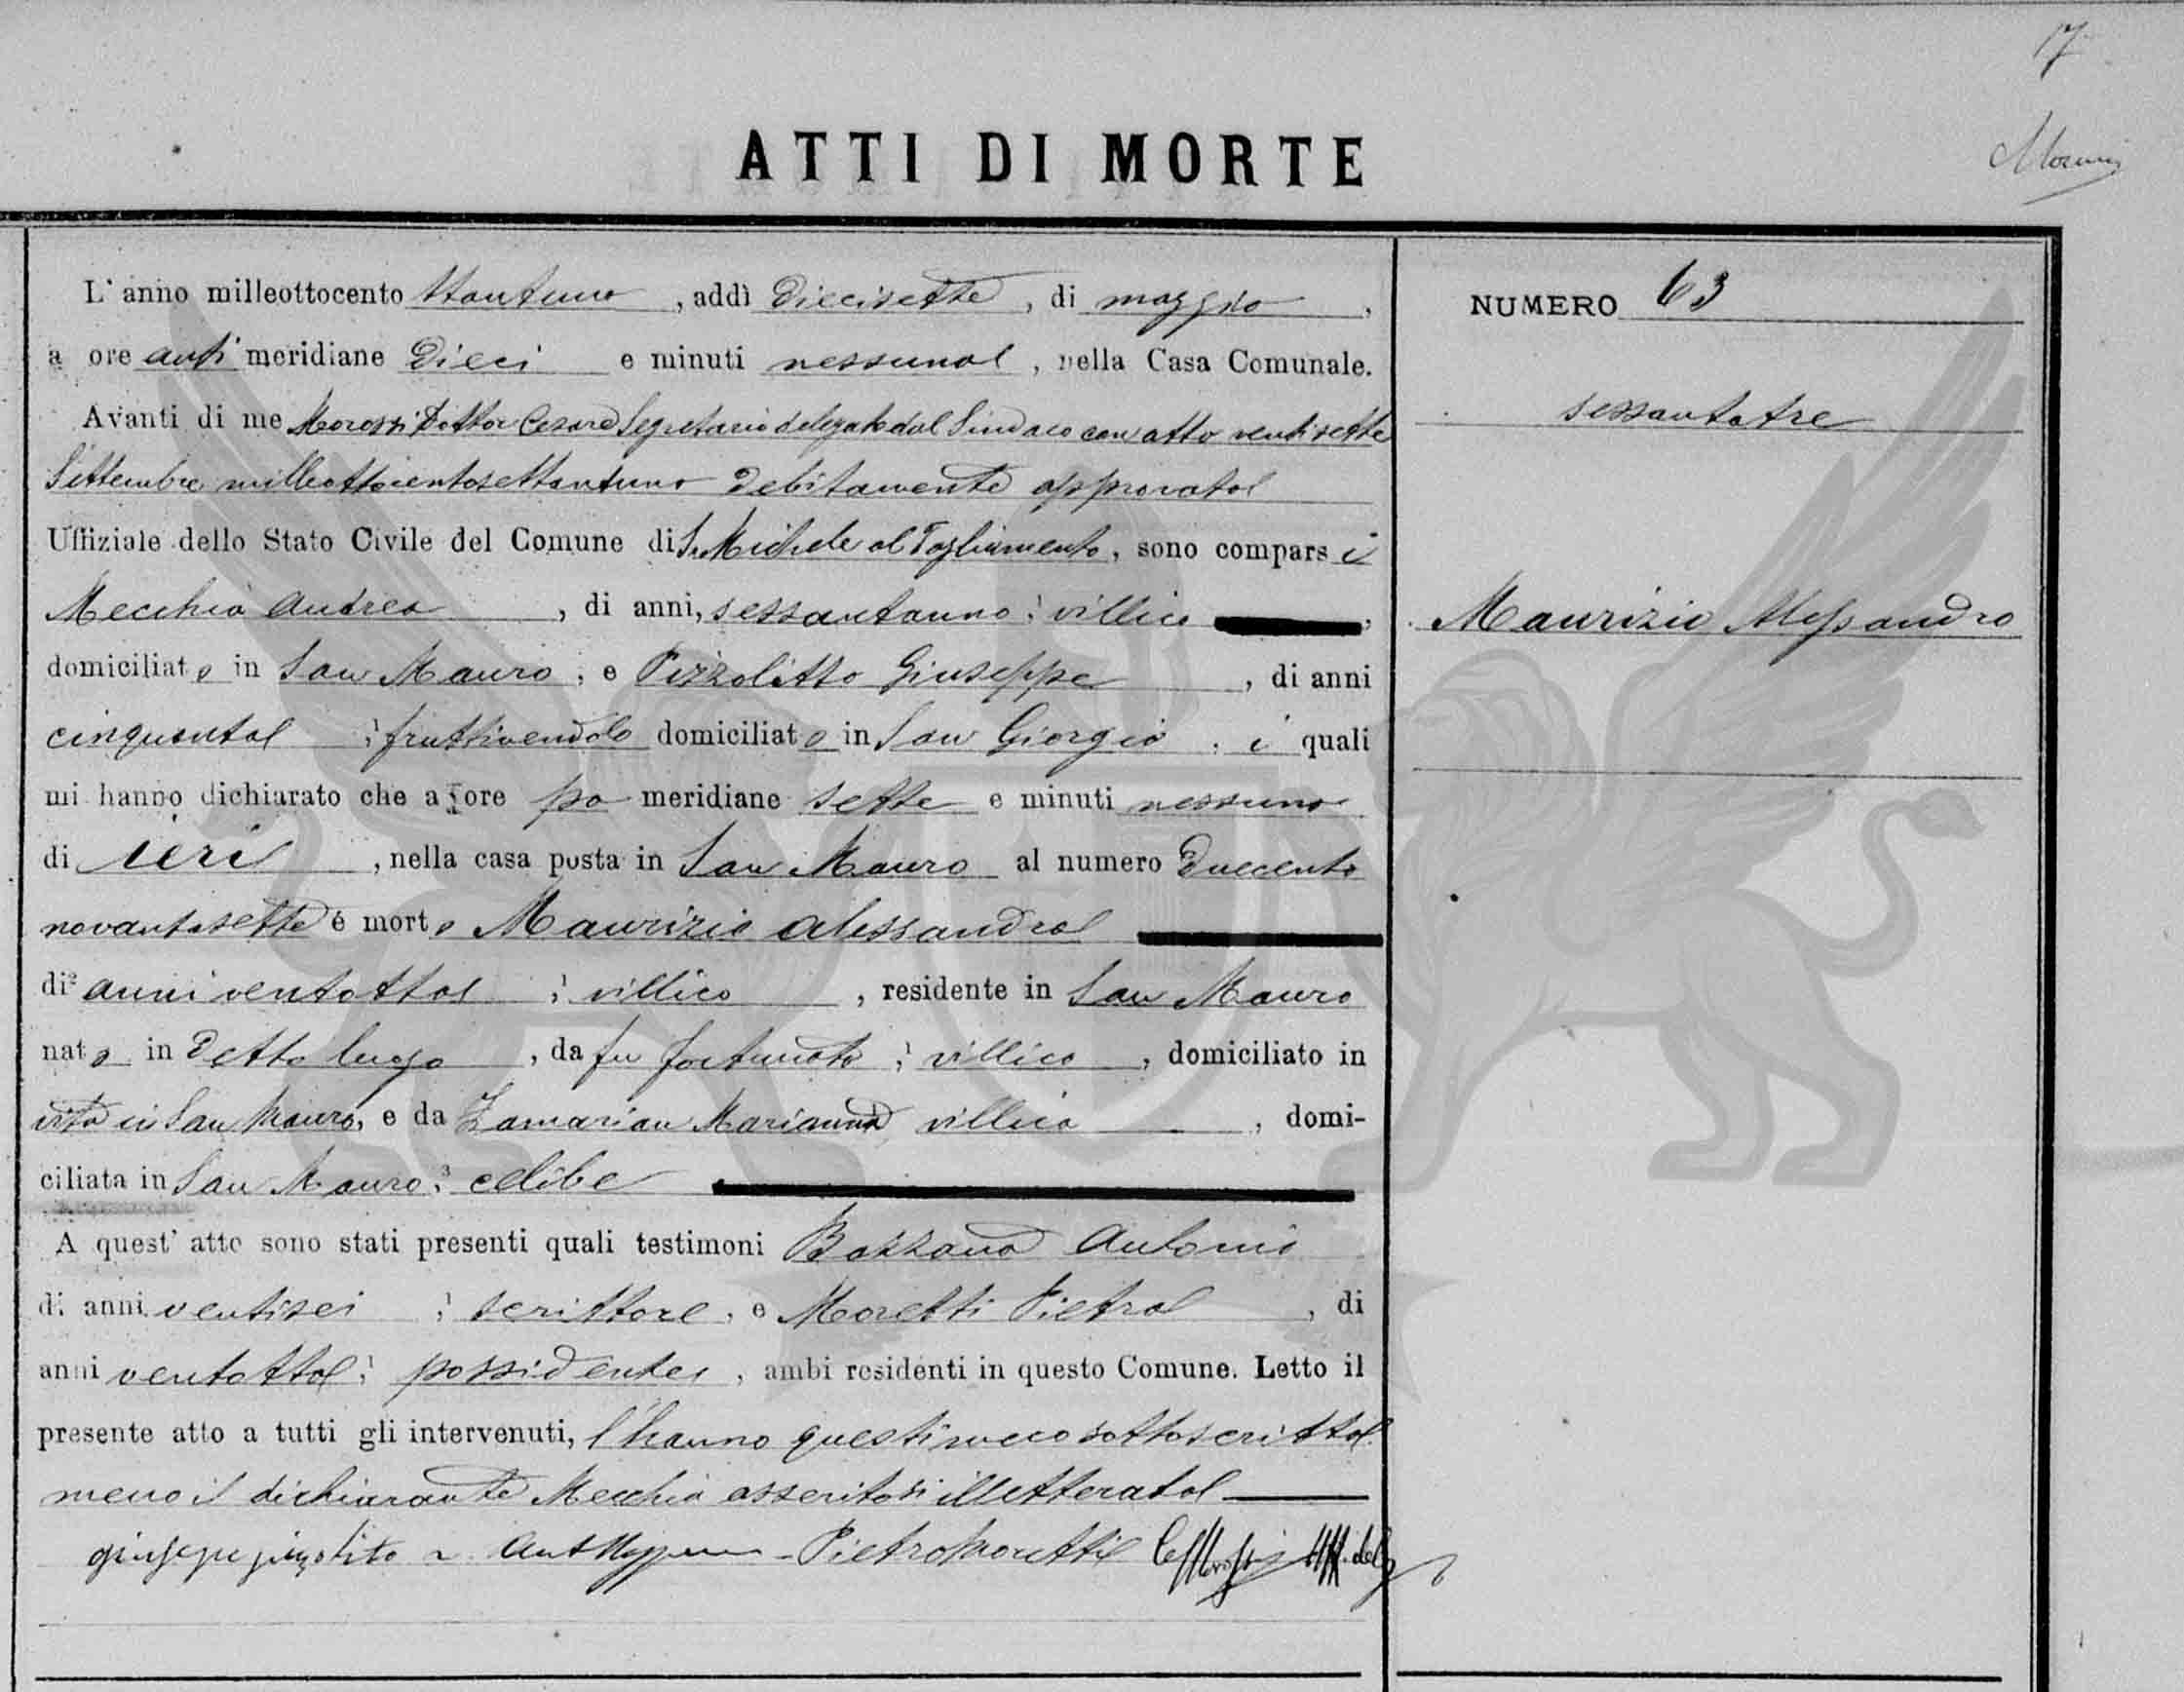 17
ATTI DI MORTE
L'anno milleottocento ttantuno, addì diecisette, di maggio,
a ore anti meridiane dieci e minuti nessuno, nella Casa Comunale.
Avanti di me Morossi Dottor Cesare Segretario delegato dal Sindaco con atto ventisette
Settembre milleottocentosettantuno debitamente approvato
Uffiziale dello Stato Civile del Comune di S. Michele al Tagliamento, sono comparsi
Mecchia Andrea, di anni, sessantauno, villico,
domiciliato in San Mauro, e Pizzolitto Giuseppe, di anni
cinquanta, fruttivendolo domiciliato in San Giorgio, i quali
mi hanno dichiarato che a ore po meridiane sette e minuti nessuno
di ieri, nella casa posta in San Mauro al numero duecento
novantasette è morto Maurizio Alessandro
di anni ventotto, villico, residente in San Mauro
nato in detto luogo, da fu Fortunato, villico, domiciliato in
vita in San Mauro, e da Zamarian Marianna villica, domi-
ciliata in San Mauro, celibe
A quest' atto sono stati presenti quali testimoni Antonio
di anni ventisei, scrittore, e Moretti Pietro, di
anni ventotto, possidente, ambi residenti in questo Comune. Letto il
presente atto a tutti gli intervenuti, l'hanno questi meco sottoscritto
meno il dichiarante Mecchia asseritosi illetterato
giusepe pizzolito Ant Pietro Moretti
NUMERO 63
sessantatre
Maurizio Alessandro